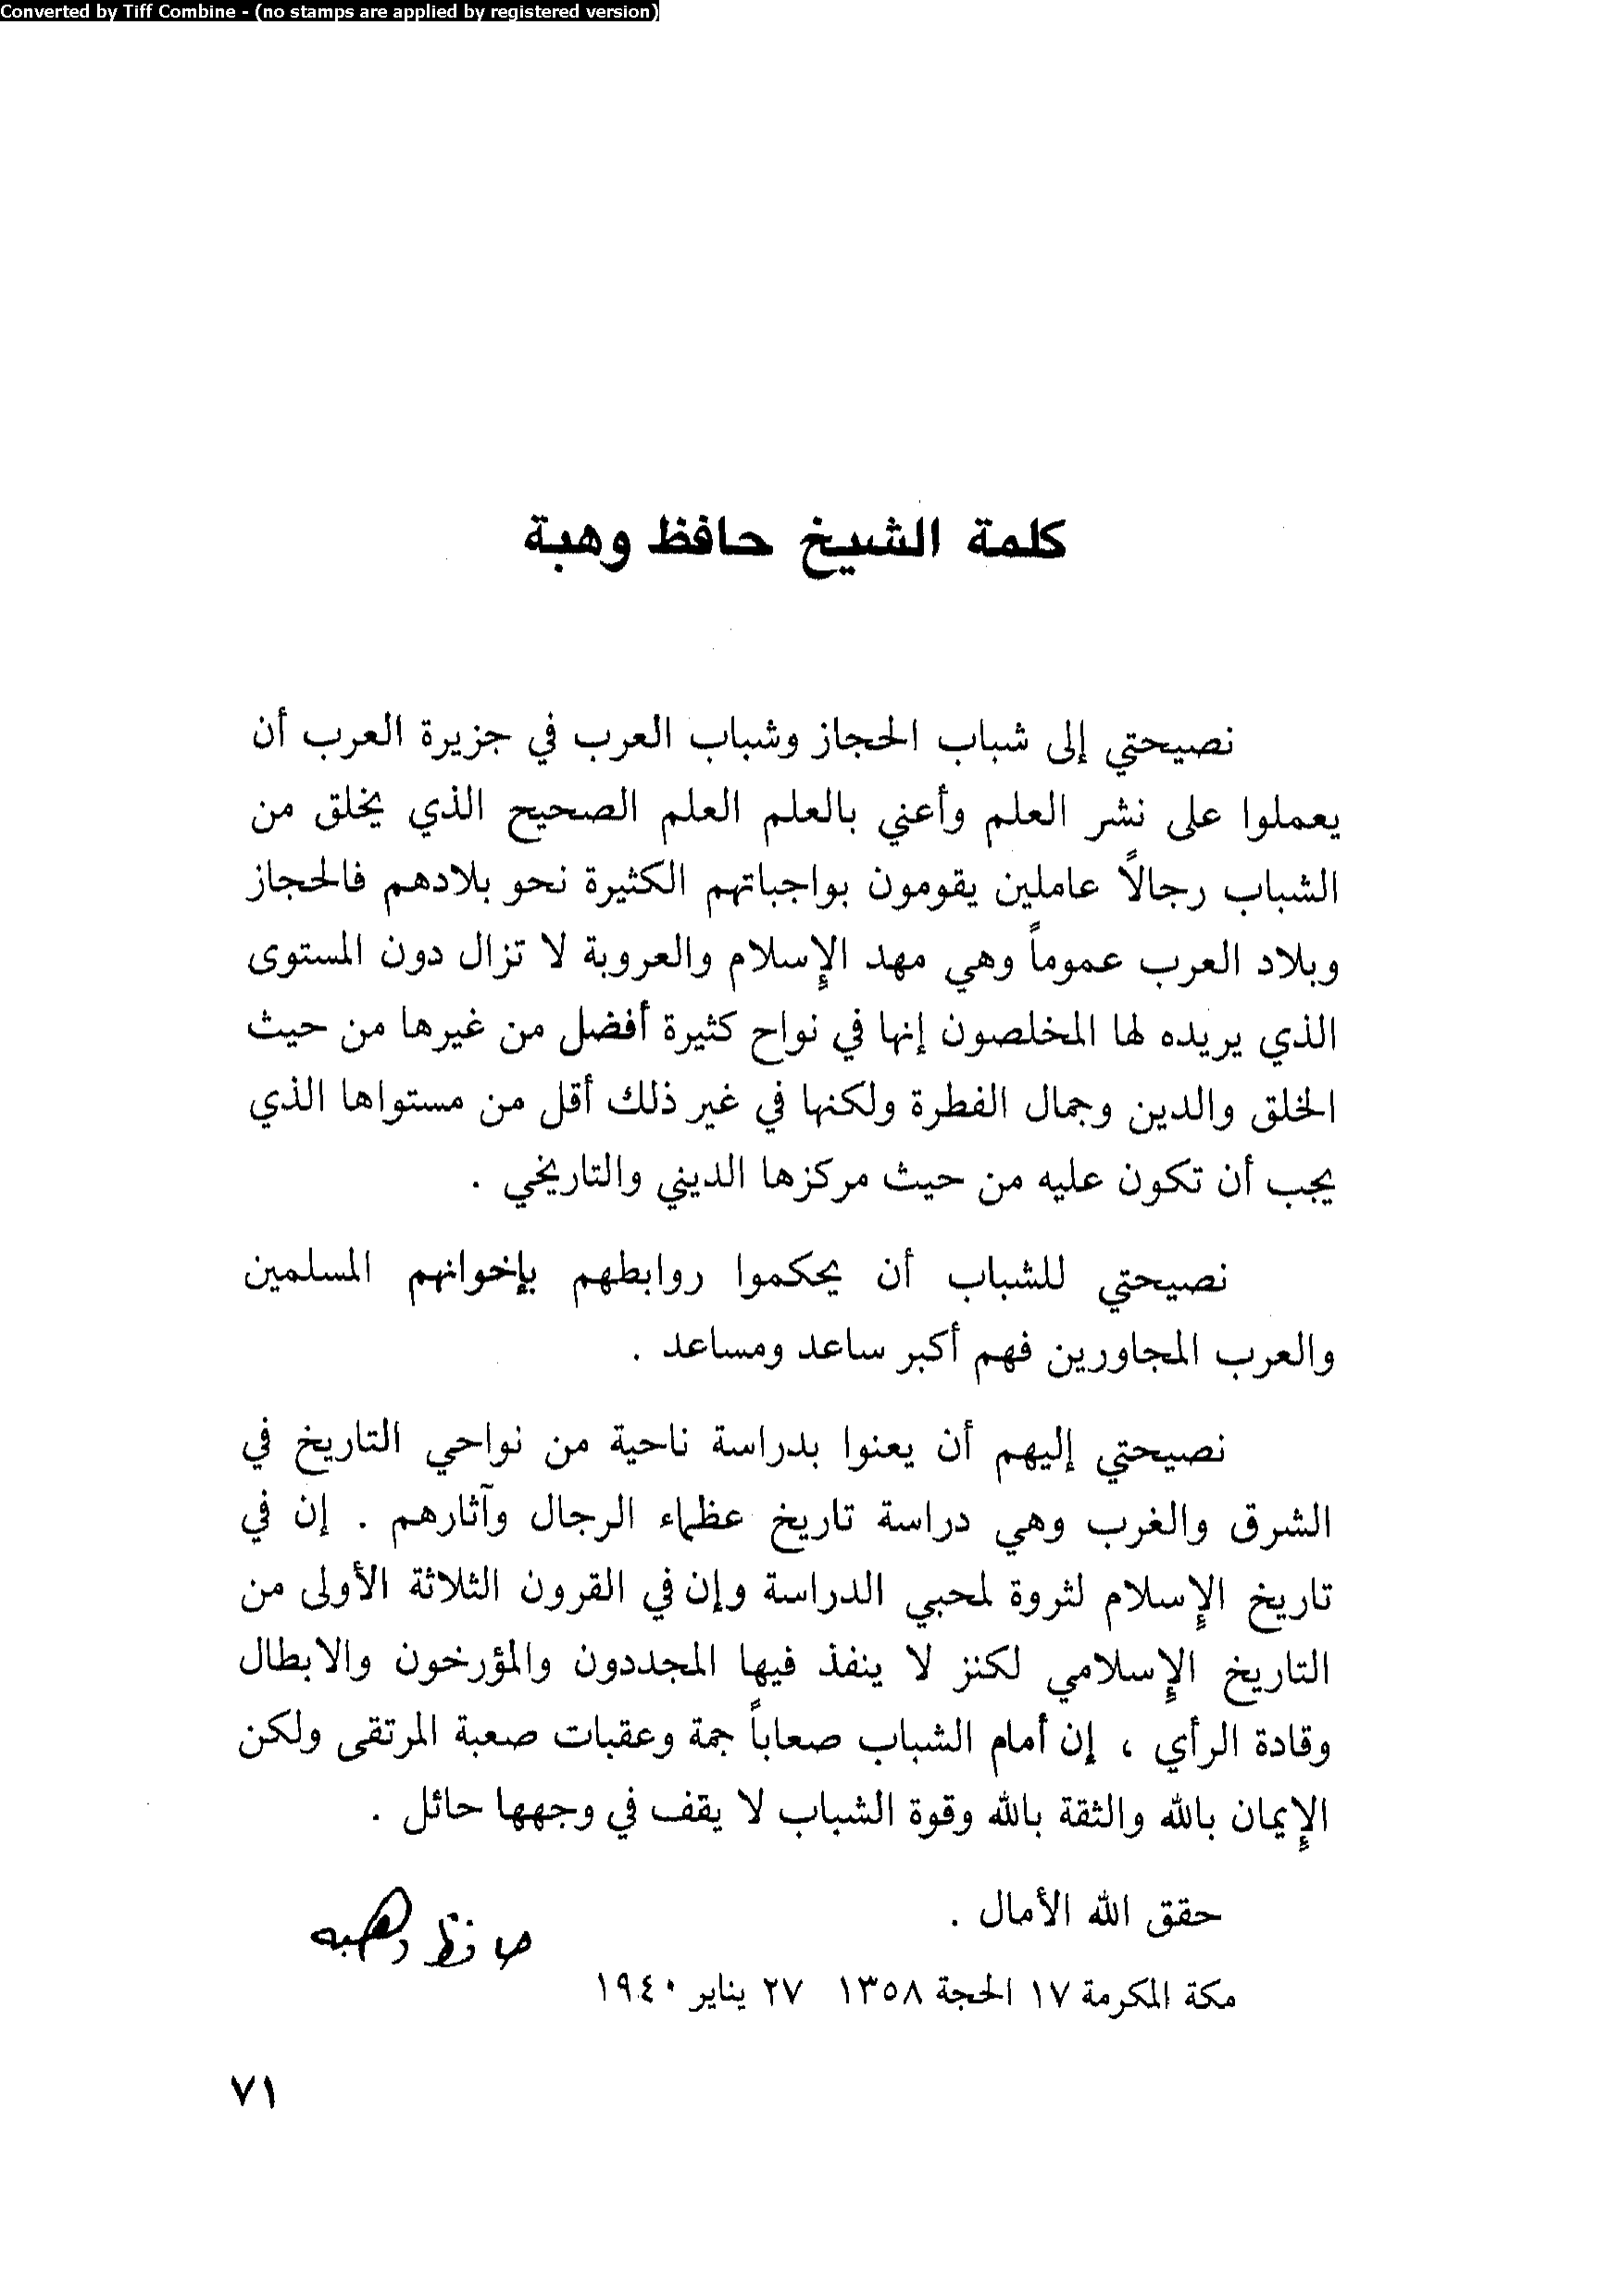 Converted by Tiff Combine - (no stamps are applied by registered version)
كلمة الشيخ حافظ وهبة
نصيحتي إلى شباب الحجاز وشباب العرب في جزيرة العرب أن
يعملوا على نشر العلم وأعني بالعلم العلم الصحيح الذي يخلق من
الشباب رجالاً عاملين يقومون بواجباتهم الكثيرة نحو بلادهم فالحجاز
وبلاد العرب عموماً وهي مهد الإسلام والعروبة لا تزال دون المستوى
الذي يريده لها المخلصون إنها في نواح كثيرة أفضل من غيرها من حيث
الخلق والدين وجمال الفطرة ولكنها في غير ذلك أقل من مستواها الذي
يجب أن تكون عليه من حيث مركزها الديني والتاريخي .
نصيحتي للشباب أن يحكموا روابطهم بإخوانهم المسلمين
والعرب المجاورين فهم أكبر ساعد ومساعد .
نصيحتي إليهم أن يعنوا بدراسة ناحية من نواحي التاريخ في
الشرق والغرب وهي دراسة تاريخ عظماء الرجال وآثارهم . إن في
تاريخ الإسلام لثروة لمحبي الدراسة وإن في القرون الثلاثة الأولى من
التاريخ الإسلامي لكنز لا ينفذ فيها المجددون والمؤرخون والابطال
وقادة الرأي ، إن أمام الشباب صعاباً جمة وعقبات صعبة المرتقى ولكن
الإيمان بالله والثقة بالله وقوة الشباب لا يقف في وجهها حائل .
حقق الله الأمال .
حافظ وهبه
مكة المكرمة ١٧ الحجة ١٣٥٨ ٢٧ يناير ١٩٤٠
٧١